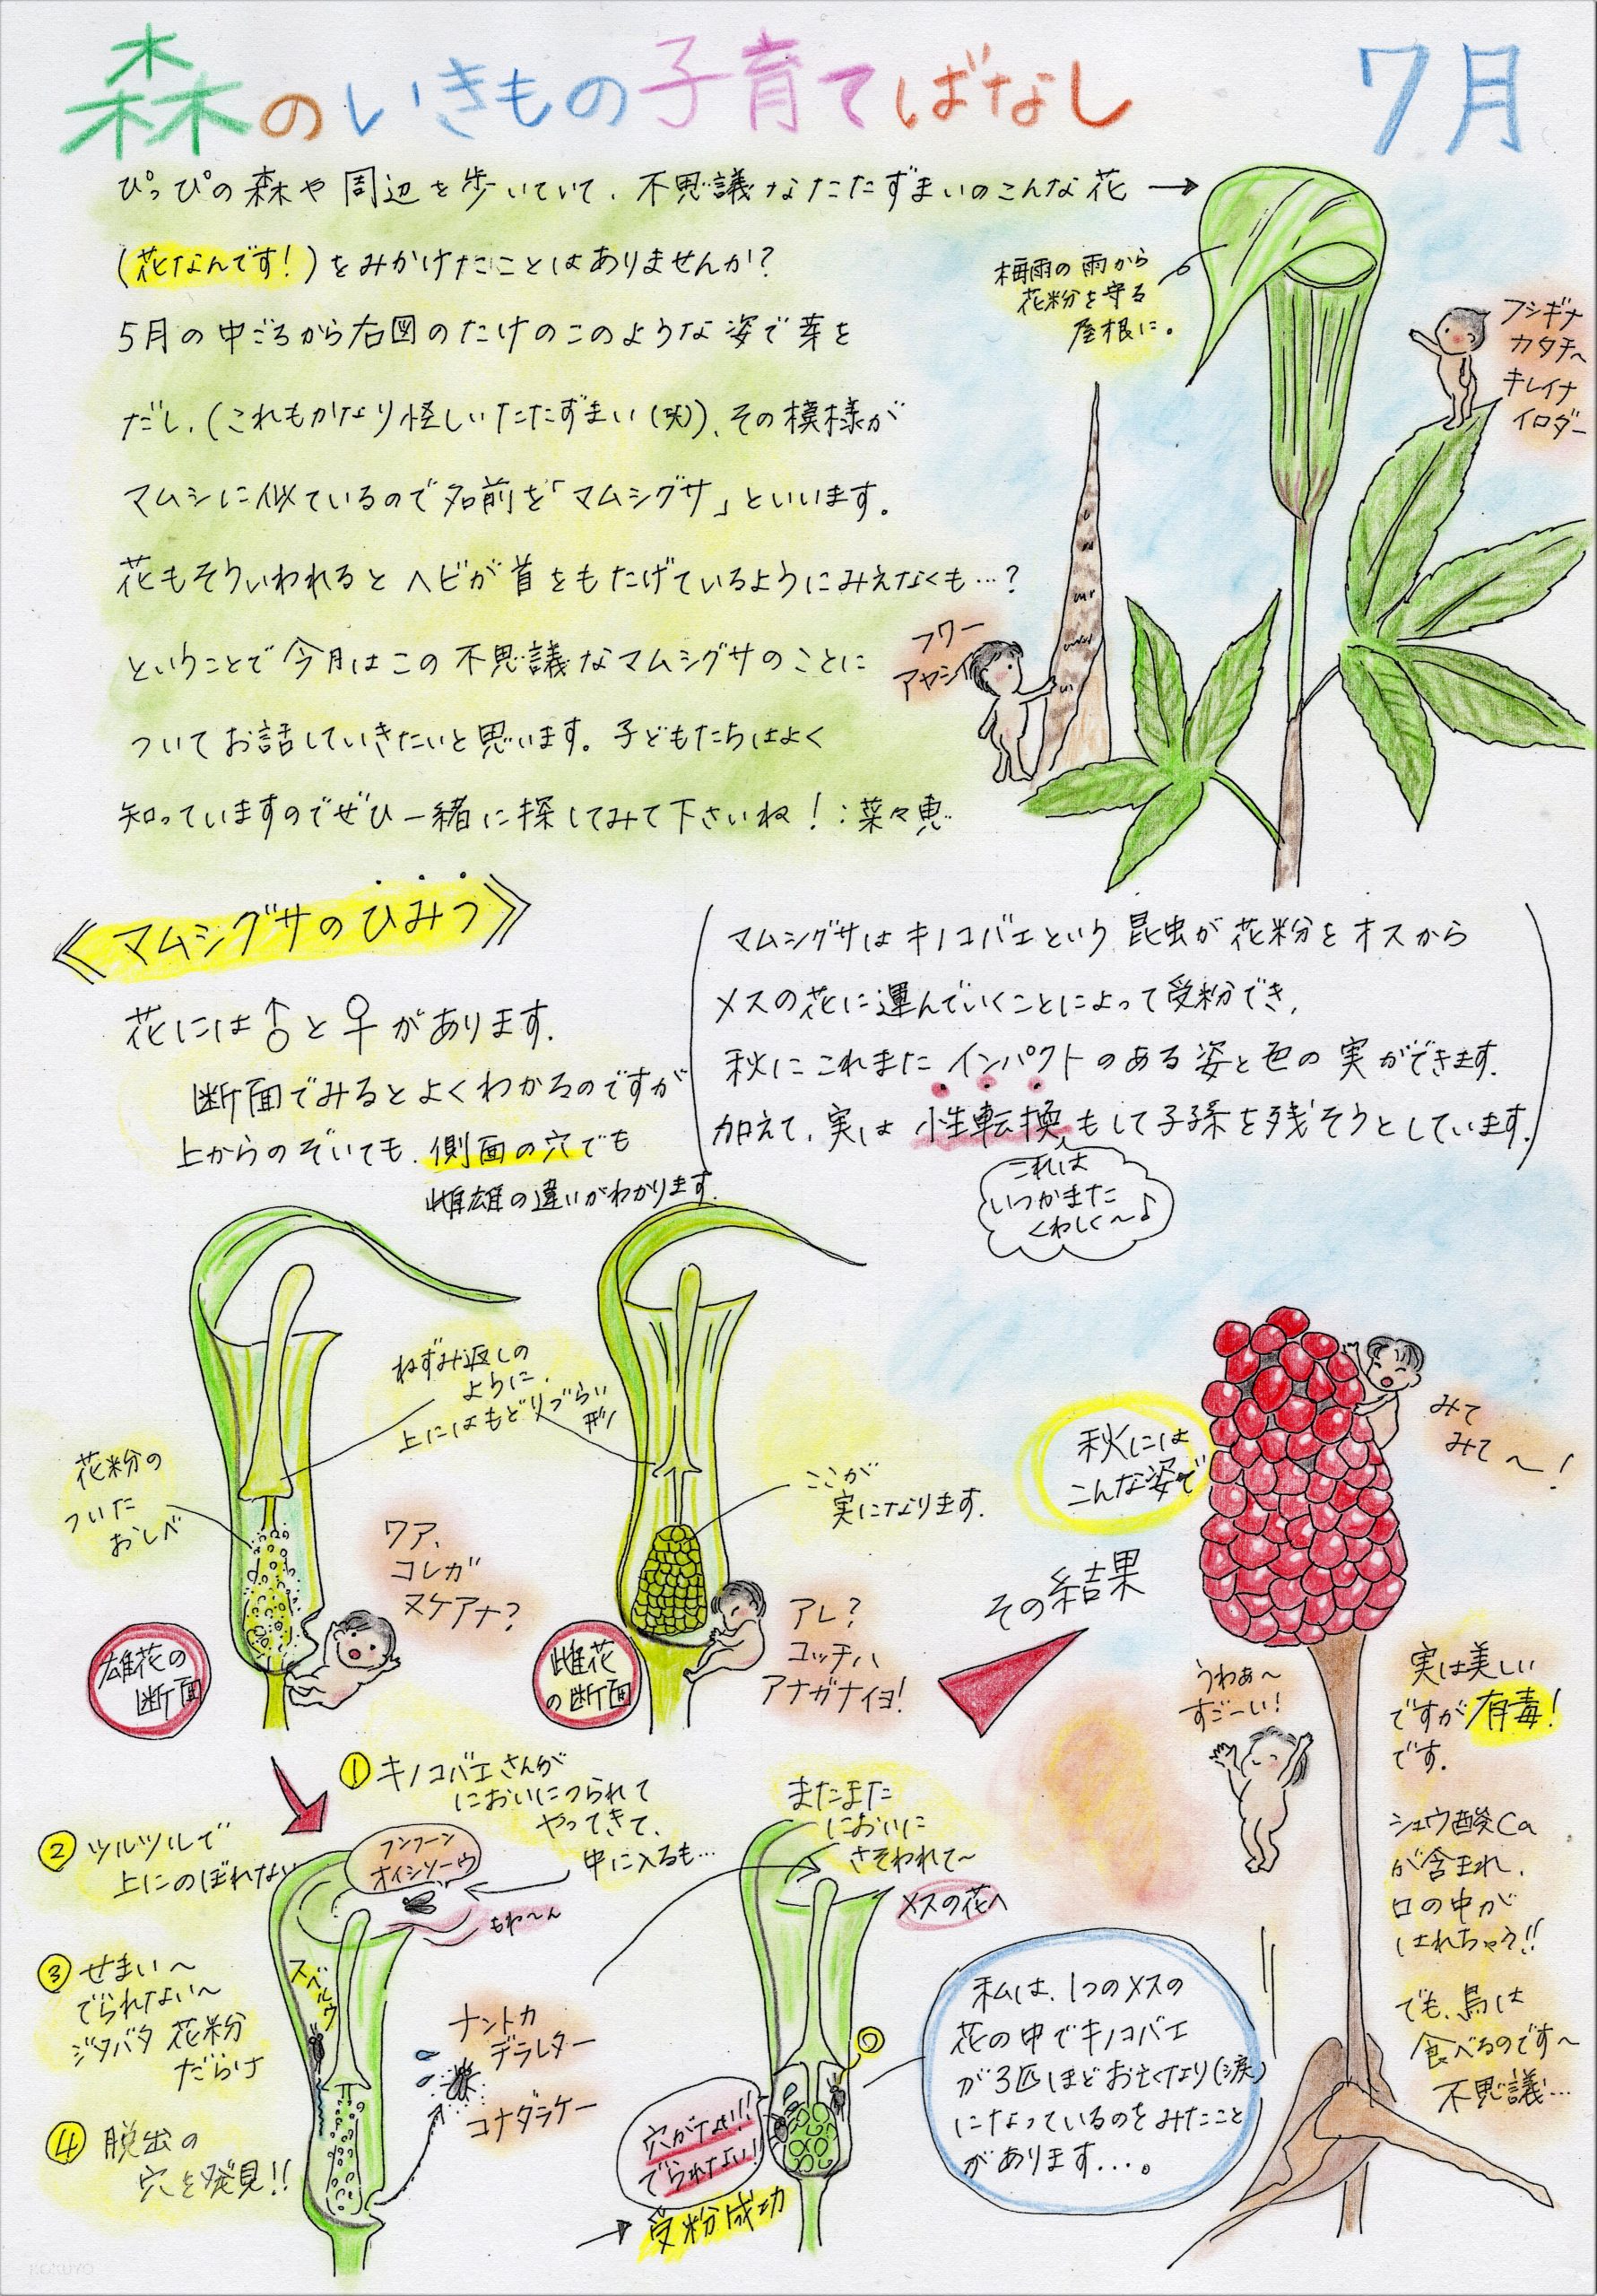 森のいきもの子育てばなし 7月
ぴっぴの森や周辺を歩いていて、不思議なたたずまいのこんな花→
(花なんです!)をみかけたことはありませんか?
5月の中ごろから右図のたけのこのような姿で芽を
だし、(これもかなり怪しいたたずまい(笑))、その模様が
マムシに似ているので名前を「マムシグサ」といいます。
花もそういわれるとヘビが首をもたげているようにみえなくも…?
ということで今月はこの不思議なマムシグサのことに
ついてお話していきたいと思います。子どもたちはよく
知っていますのでぜひ一緒に探してみて下さいね!:菜々恵
梅雨の雨から
花粉を守る
屋根に。
フシギナ
カタチへ
キレイナ
イロダー
フワー
アヤシイ
《マムシグサのひみつ》
花には♂と♀があります。
断面でみるとよくわかるのですが
上からのぞいても、側面の穴でも
雌雄の違いがわかります。
マムシグサはキノコバエという昆虫が花粉をオスから
メスの花に運んでいくことによって受粉でき、
秋にこれまたインパクトのある姿と色の実ができます。
加えて、実は性転換もして子孫を残そうとしています。
これは
いつかまた
くわしく〜♪
ねずみ返しの
ように、
上にはもどりづらい
形
花粉の
ついた
おしべ
ワア、
コレガ
ヌケアナ?
雄花の
断面
ここが
実になります。
アレ?
コッチハ
アナガナイヨ!
雌花
の断面
その結果
秋には
こんな姿で
みて
みて〜!
うわぁ〜
すごーい!
実は美しい
ですが有毒!
です。
シュウ酸Ca
が含まれ、
口の中が
はれちゃう!!
でも、鳥は
食べるのです〜
不思議…
①キノコバエさんが
においにつられて
やってきて、
中に入るも…
フンフーン
オイシソーウ
もわ〜ん
②ツルツルで
上にのぼれない
スベルゥ
③せまい〜
でられない〜
ジタバタ花粉
だらけ
④脱出の
穴を発見!!
ナントカ
デラレター
コナダラケー
またまた
においに
さそわれて〜
メスの花へ
穴がない!!
でられない!
→受粉成功
私は、1つのメスの
花の中でキノコバエ
が3匹ほどお亡くなり(涙)
になっているのをみたこと
があります…。